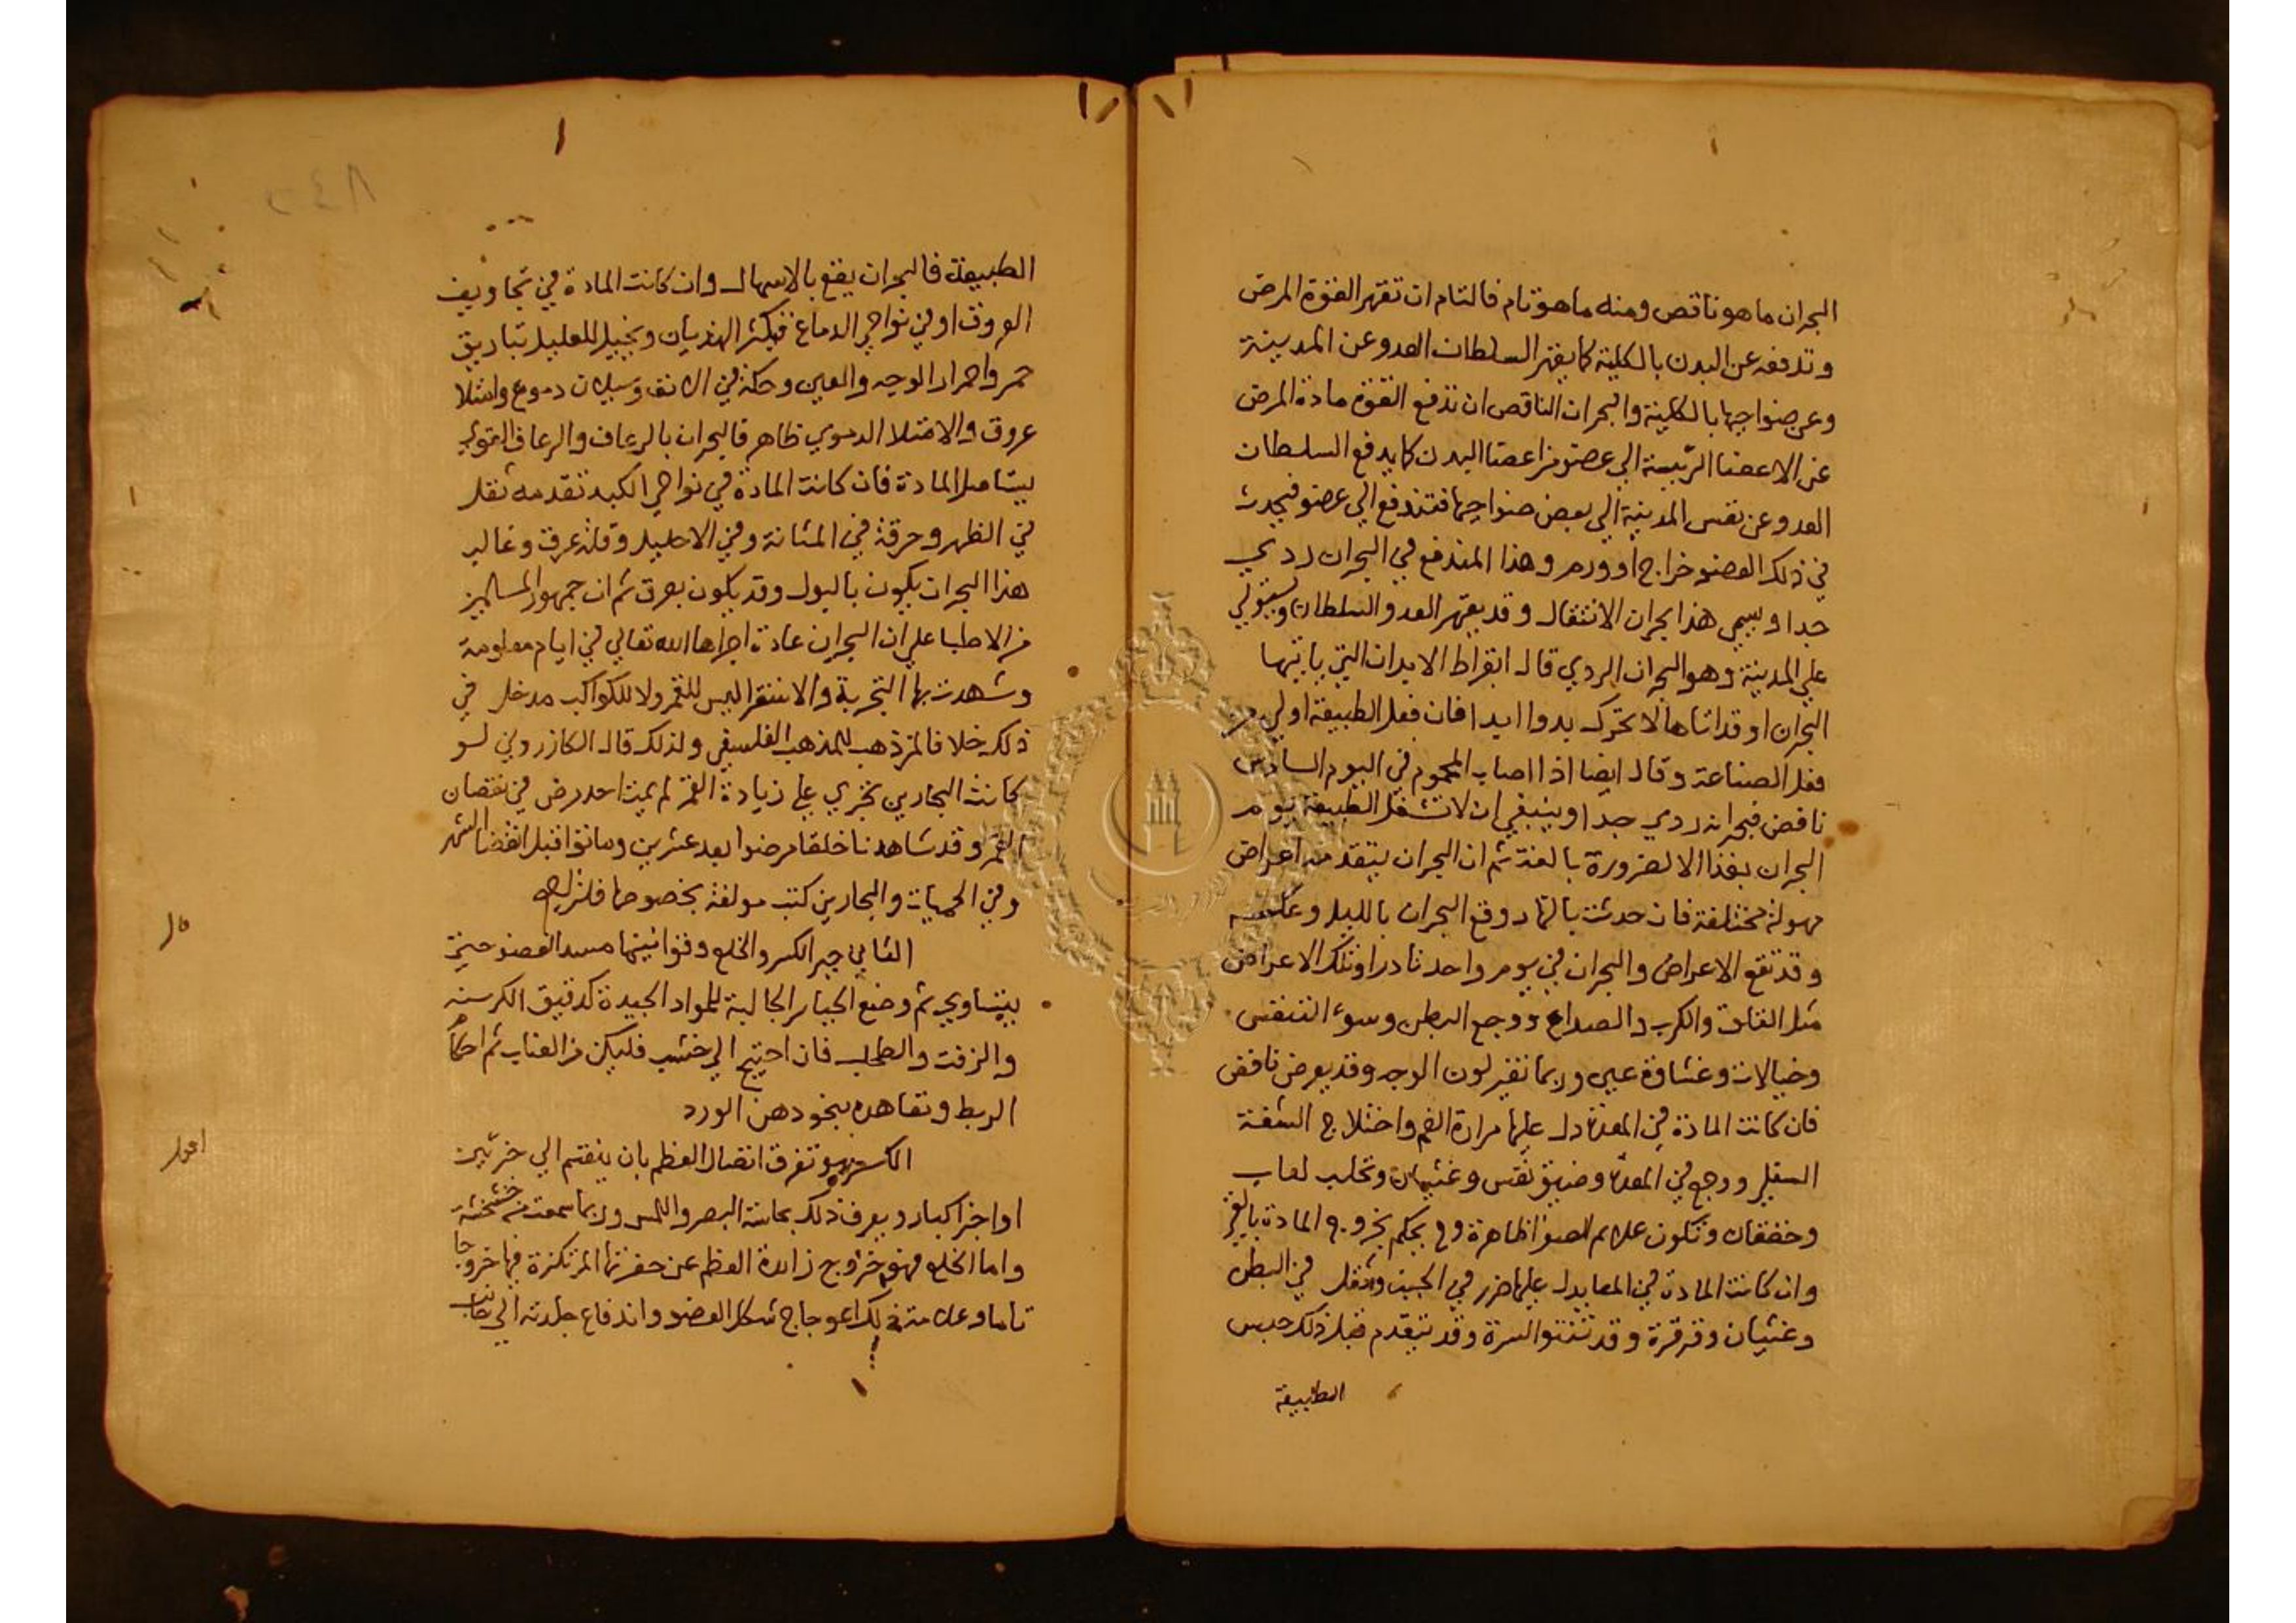 البحران ما هو ناقص ومنه ما هو تام فالتام ان تقهر القوة المرض
وتدفعه عن البدن بالكلية كما يقهر السلطان العدو عن المدينة
وعن ضواحيها بالكلية والبحران الناقص ان تدفع القوة مادة المرض
عن الاعضا الرئيسة الي عضو من اعضا البدن كما يدفع السلطان
العدو عن نفس المدينة الي بعض ضواحيها فتندفع الي عضو فيحدث
في ذلك العضو خراج او ورم وهذا المندفع في البحران ردي
جدا ويسمي هذا بحران الانتقال وقد يقهر العدو السلطان ويستولي
علي المدينة وهو البحران الردي قال ابقراط الابدان التي ياتيها
البحران او قد اتاها لا تحرك بدوا ابدا فان فعل الطبيعة اولي من
فعل الصناعة وقال ايضا اذا اصاب المحموم في اليوم السادس
نافض فبحرانه ردي جدا وينبغي ان لا تشغل الطبيعة يوم
البحران بغذا الا لضرورة بالغة ثم ان البحران يتقدمه اعراض
مهولة مختلفة فان حدثت بالنهار وقع البحران بالليل وعكسه
وقد تقع الاعراض والبحران في يوم واحد نادرا وتلك الاعراض
مثل القلق والكرب والصداع ووجع البطن وسوء التنفس
وخيالات وغشاوة عين وربما تغير لون الوجه وقد يعرض نافض
فان كانت المادة في المعدة دل عليها مرارة الفم واختلاج الشفة
السفلي ووجع في المعدة وضيق نفس وغثيان وتحلب لعاب
وخفقان وتكون علايم الصفرا ظاهرة وح يحكم بخروج المادة بالقي
وان كانت المادة في المعا يدل عليها ضرر في الجنب وثقل في البطن
وغثيان وقرقرة وقد تنتو السرة وقد يتقدم قبل ذلك حبس
الطبيعة
٢٤٨
الطبيعة فالبحران يقع بالاسهال وان كانت المادة في تجاويف
العروق او في نواحي الدماغ فيكثر الهذيان ويخيل للعليل تباريق
حمر واحمرار الوجه والعين وحكة في الانف وسيلان دموع وامتلا
عروق والامتلا الدموي ظاهر فالبحران بالرعاف والرعاف القوي
يستاصل المادة فان كانت المادة في نواحي الكبد تقدمه ثقل
في الظهر وحرقة في المثانة وفي الاحليل وقلة عرق وغالب
هذا البحران يكون بالبول وقد يكون بعرق ثم ان جمهور المسلمين
من الاطبا علي ان البحران عادة اجراها الله تعالي في ايام معلومة
وشهدت بها التجربة والاستقرا ليس للقمر ولا للكواكب مدخل في
ذلك خلافا لمن ذهب للمذهب الفلسفي ولذلك قال الكازروني لو
كانت البحارين تجري علي زيادة القمر لم يمت احد مرض في نقصان
القمر وقد شاهدنا خلقا مرضوا بعد عشرين وماتوا قبل انقضا الشهر
وفي الحميات والبحارين كتب مولفة بخصوصها فلتراجع
الثاني جبر الكسر والخلع وقوانينها مسد العضو حتي
يتساوي ثم وضع الجباير الجالبة للمواد الجيدة كدقيق الكرسنه
والزفت والطحلب فان احتيج الي خشب فليكن من العناب ثم احكام
الربط وتعاهده بنحو دهن الورد
الكسر هو تفرق اتصال العظم بان ينقسم الي جزئين
او اجزا كبار ويعرف ذلك بحاسة البصر واللمس وربما سمعت منه خشخشة
واما الخلع فهو خروج زايدة العظم عن حفرتها المرتكزة فيها خروجا
تاما وعلامته ذلك اعوجاج شكل العضو واندفاع جلدته الي جانب